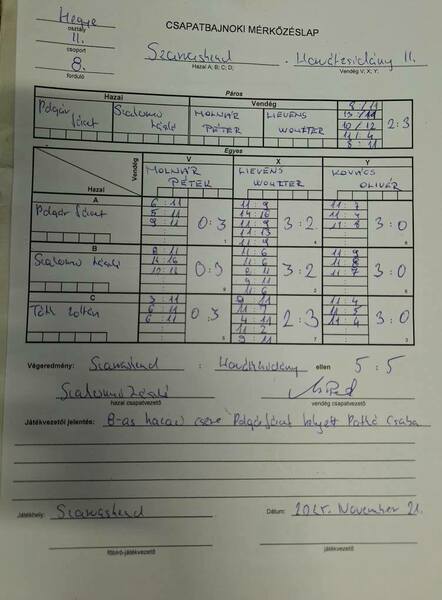 Megye
osztály
II.
csoport
8.
forduló
CSAPATBAJNOKI MÉRKŐZÉSLAP
Szarvaskend
Hazai A; B; C; D;
Horvátzsidány II.
Vendég V; X; Y;
Páros
Hazai Vendég
Polgár Szalomó László MOLNÁR PÉTER LIEVENS WOUTER
8 / 11
13 / 11
10 / 12
11 : 4
8 : 11
2:3
Egyes
Vendég
Hazai
V X Y
MOLNÁR PÉTER LIEVENS WOUTER KOVÁCS OLIVÉR
A
Polgár
6 : 11 11 : 9 11 : 7
5 : 11 14 : 16 11 : 7
9 : 11 11 : 9 11 : 8
11 : 13
11 : 9
0:3 3:2 3:0
B
Szalomó László
8 : 11 11 : 6 11 : 9
14 : 16 11 : 6 11 : 8
10 : 12 8 : 11 11 : 7
9 : 11
11 : 6
0:3 3:2 3:0
C
Tóth Zoltán
3 : 11 9 : 11 11 : 4
6 : 11 11 : 7 11 : 5
6 : 11 11 : 4
4 : 11
0:3 2:3 3:0
Végeredmény: Szarvaskend : Horvátzsidány ellen 5:5
Szalomó László
hazai csapatvezető vendég csapatvezető
Játékvezetői jelentés: 8-as hazai csere Polgár helyett Patkó Csaba
Játékhely: Szarvaskend Dátum: 2025. November 21.
főbíró-játékvezető játékvezető